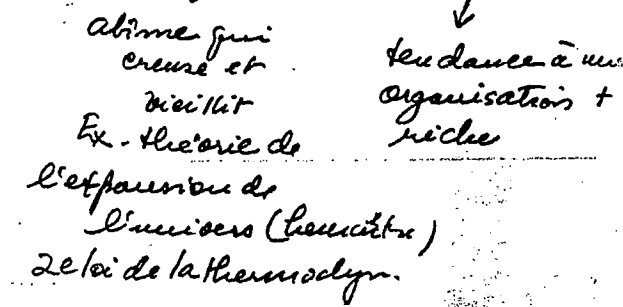 abîme qui
creuse et
vieillit
Ex. théorie de
l'expansion de
l'univers (Lemaître)
2e loi de la thermodyn.
↓
tendance à un
organisation +
riche